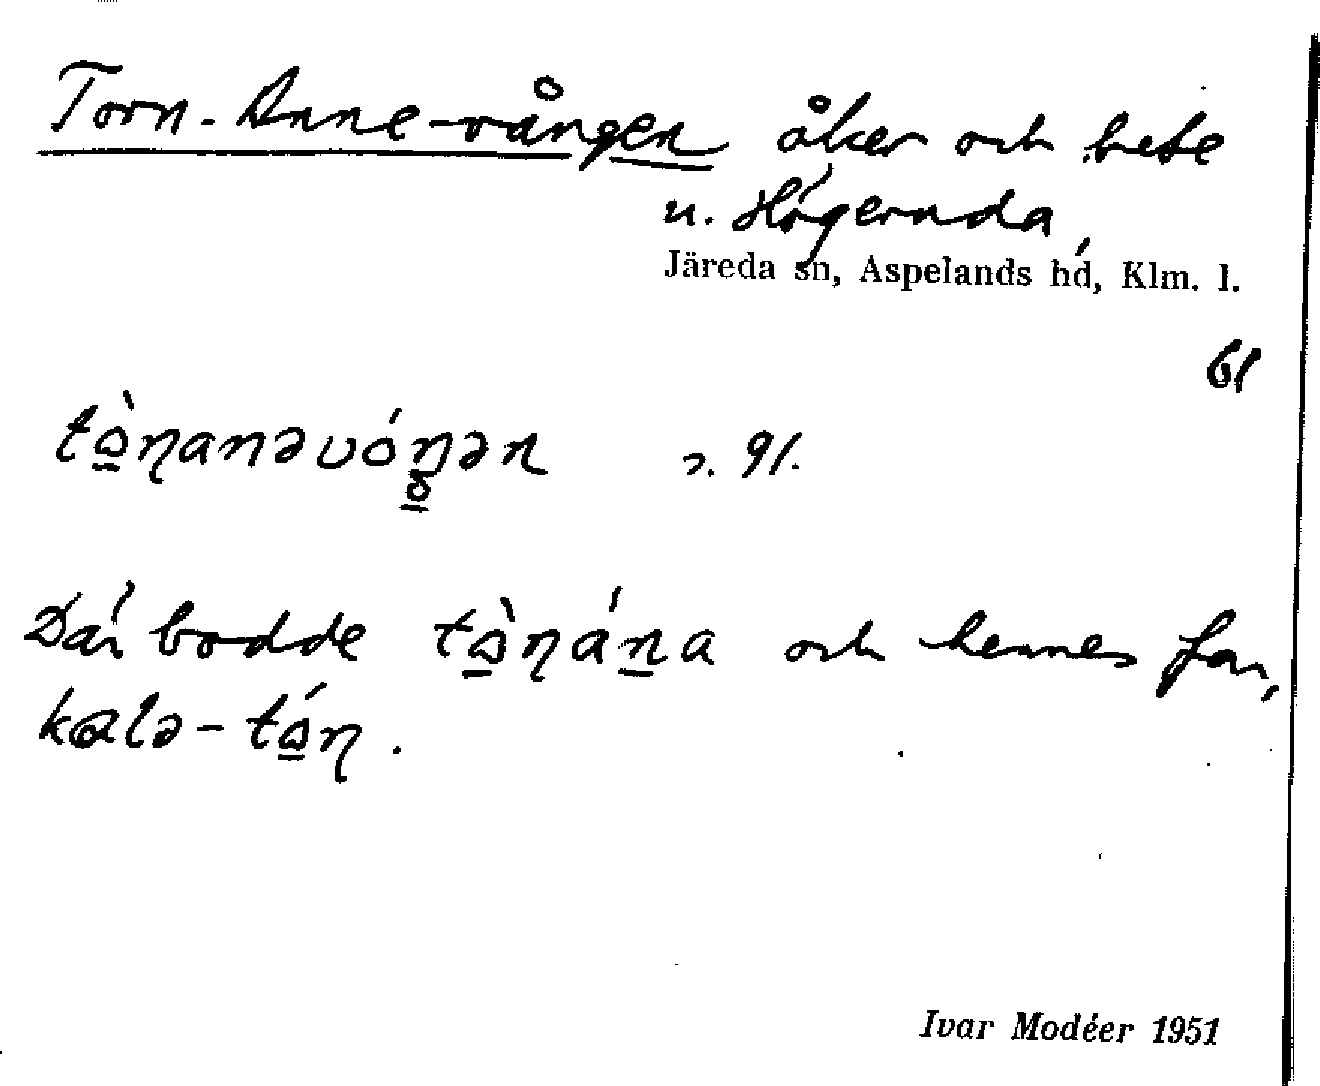 Torn-Anne-vången åker och bete
u. Högeruda,
Järeda sn, Aspelands hd, Klm. l.
61
tɔ̀ɳanəvóŋən s. 91.
Där bodde tɔ̀ɳána och hennes far,
kalə-tɔ́ɳ.
Ivar Modéer 1951